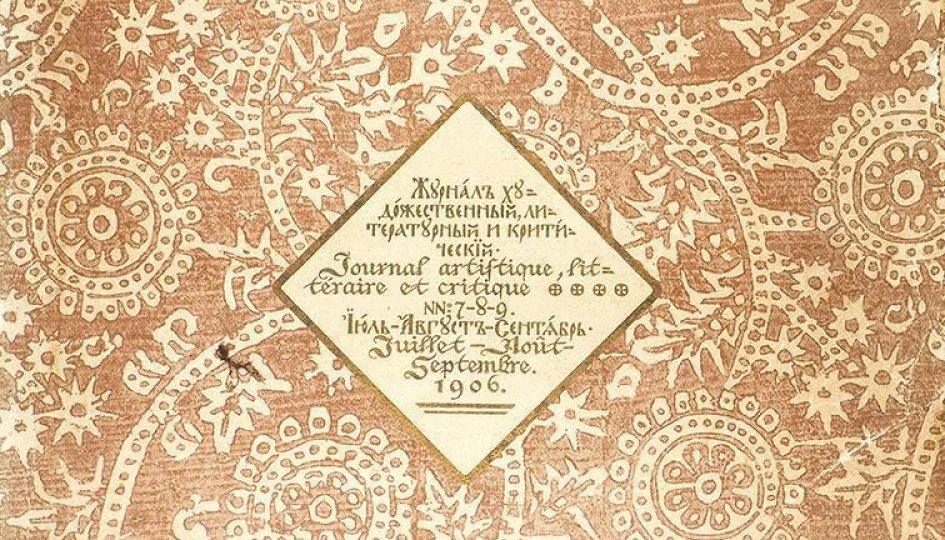 Журна́лъ ху=
до́жественный, ли-
тературный и крити́-
ческій·
Journal artistique, lit-
téraire et critique
NN: 7-8-9.
Іюль-Августъ-Сентя́брь·
Juillet-Août-
Septembre.
1906.